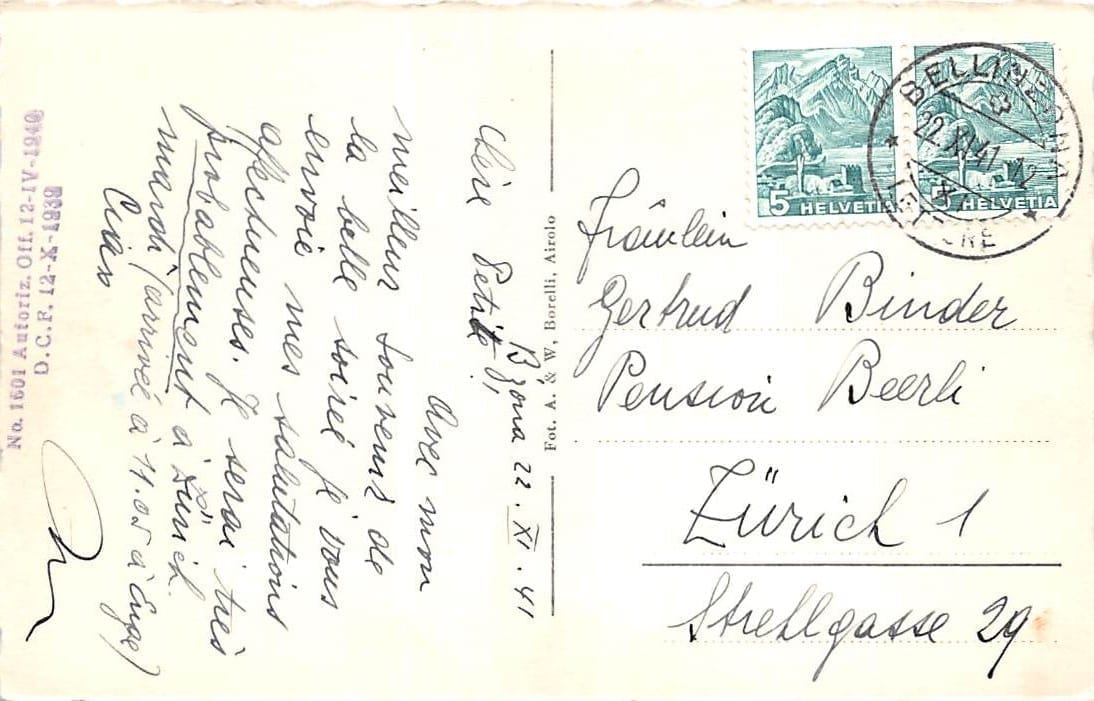 B'zona 22. XI. 41
Chère Petite,
Avec mon
meilleur souvenir de
la belle soireé je vous
envoie mes salutations
afectueuses. Je serai très
probablement à Zürich
mardi (arriveé à 11.05 à Enge)
Ciao
No. 1601 Autoriz. Off. 12-IV-1940
D.C.F. 12-X-1939
Fot. A. & W. Borelli, Airolo
5 HELVETIA
5 HELVETIA
BELLINZONA
22.XI.41-12
LETTRE
Fräulein
Gertrud Binder
Pension Beerli
Zürich 1
Strehlgasse 29